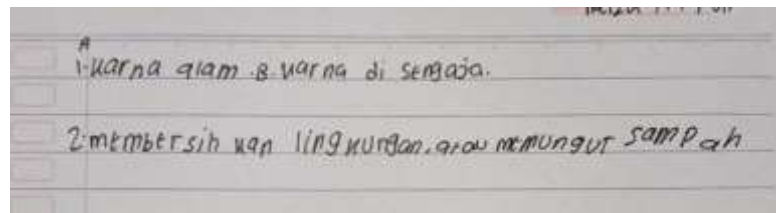 A
1. karna alam .B. karna di sengaja.
2. membersih kan lingkungan. atau memungut sampah